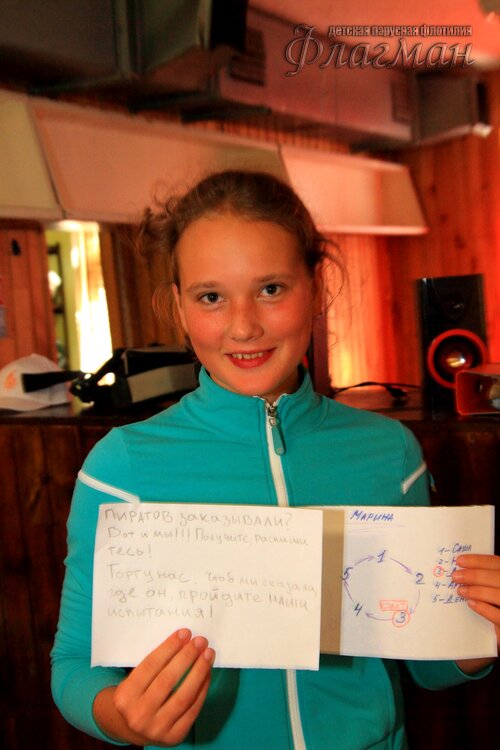 детская парусная флотилия
Флагман
ПИРАТОВ заказывали?
Вот и мы!!! Получите, распиши
тесь!
Торт у нас. Чтоб мы сказали,
где он, пройдите наши
испытания!
МАРИНА
1
2
3
4
5
СТАРТ
1-САША
2-
3-
4-АР
5-ДЕНИ